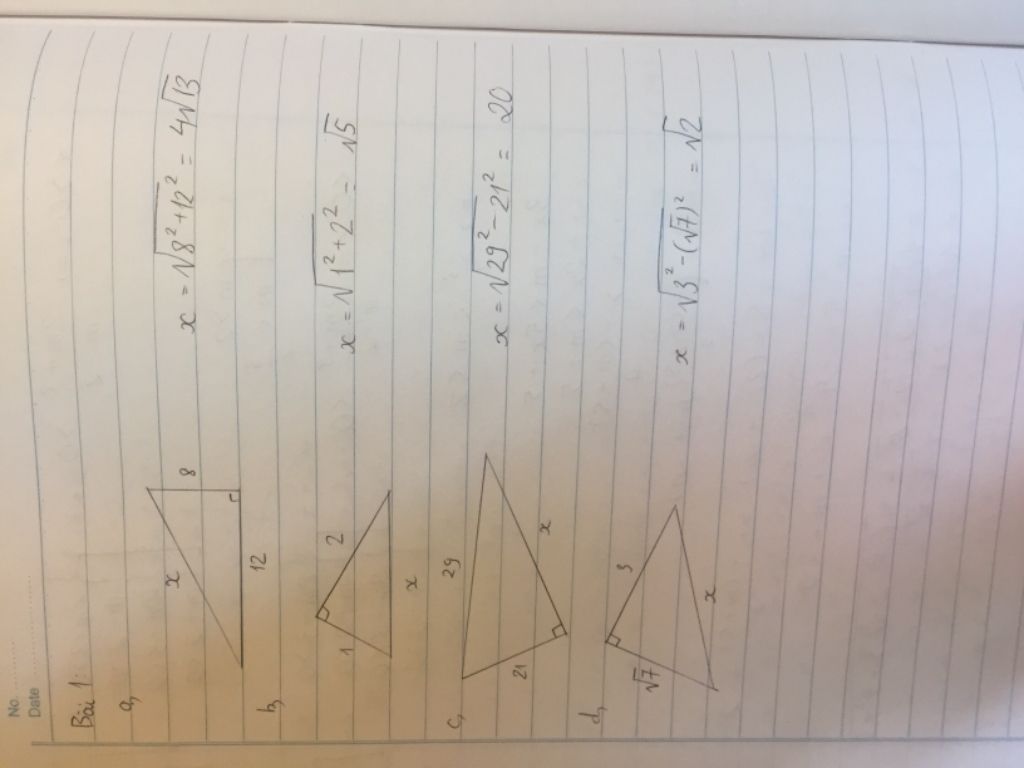 No.
Date
Bài 1:
a,
x
8
12
x = √8² + 12² = 4√13
b,
1
2
x
x = √1² + 2² = √5
c,
29
21
x
x = √29² - 21² = 20
d,
√7
3
x
x = √3² - (√7)² = √2